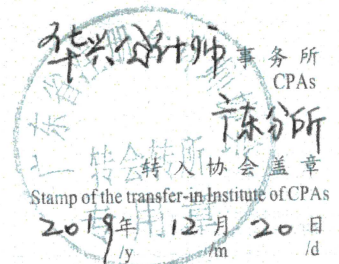 华兴会计师事务所
CPAs
广东分所
转入协会盖章
Stamp of the transfer-in Institute of CPAs
2019年 12月 20日
/y /m /d